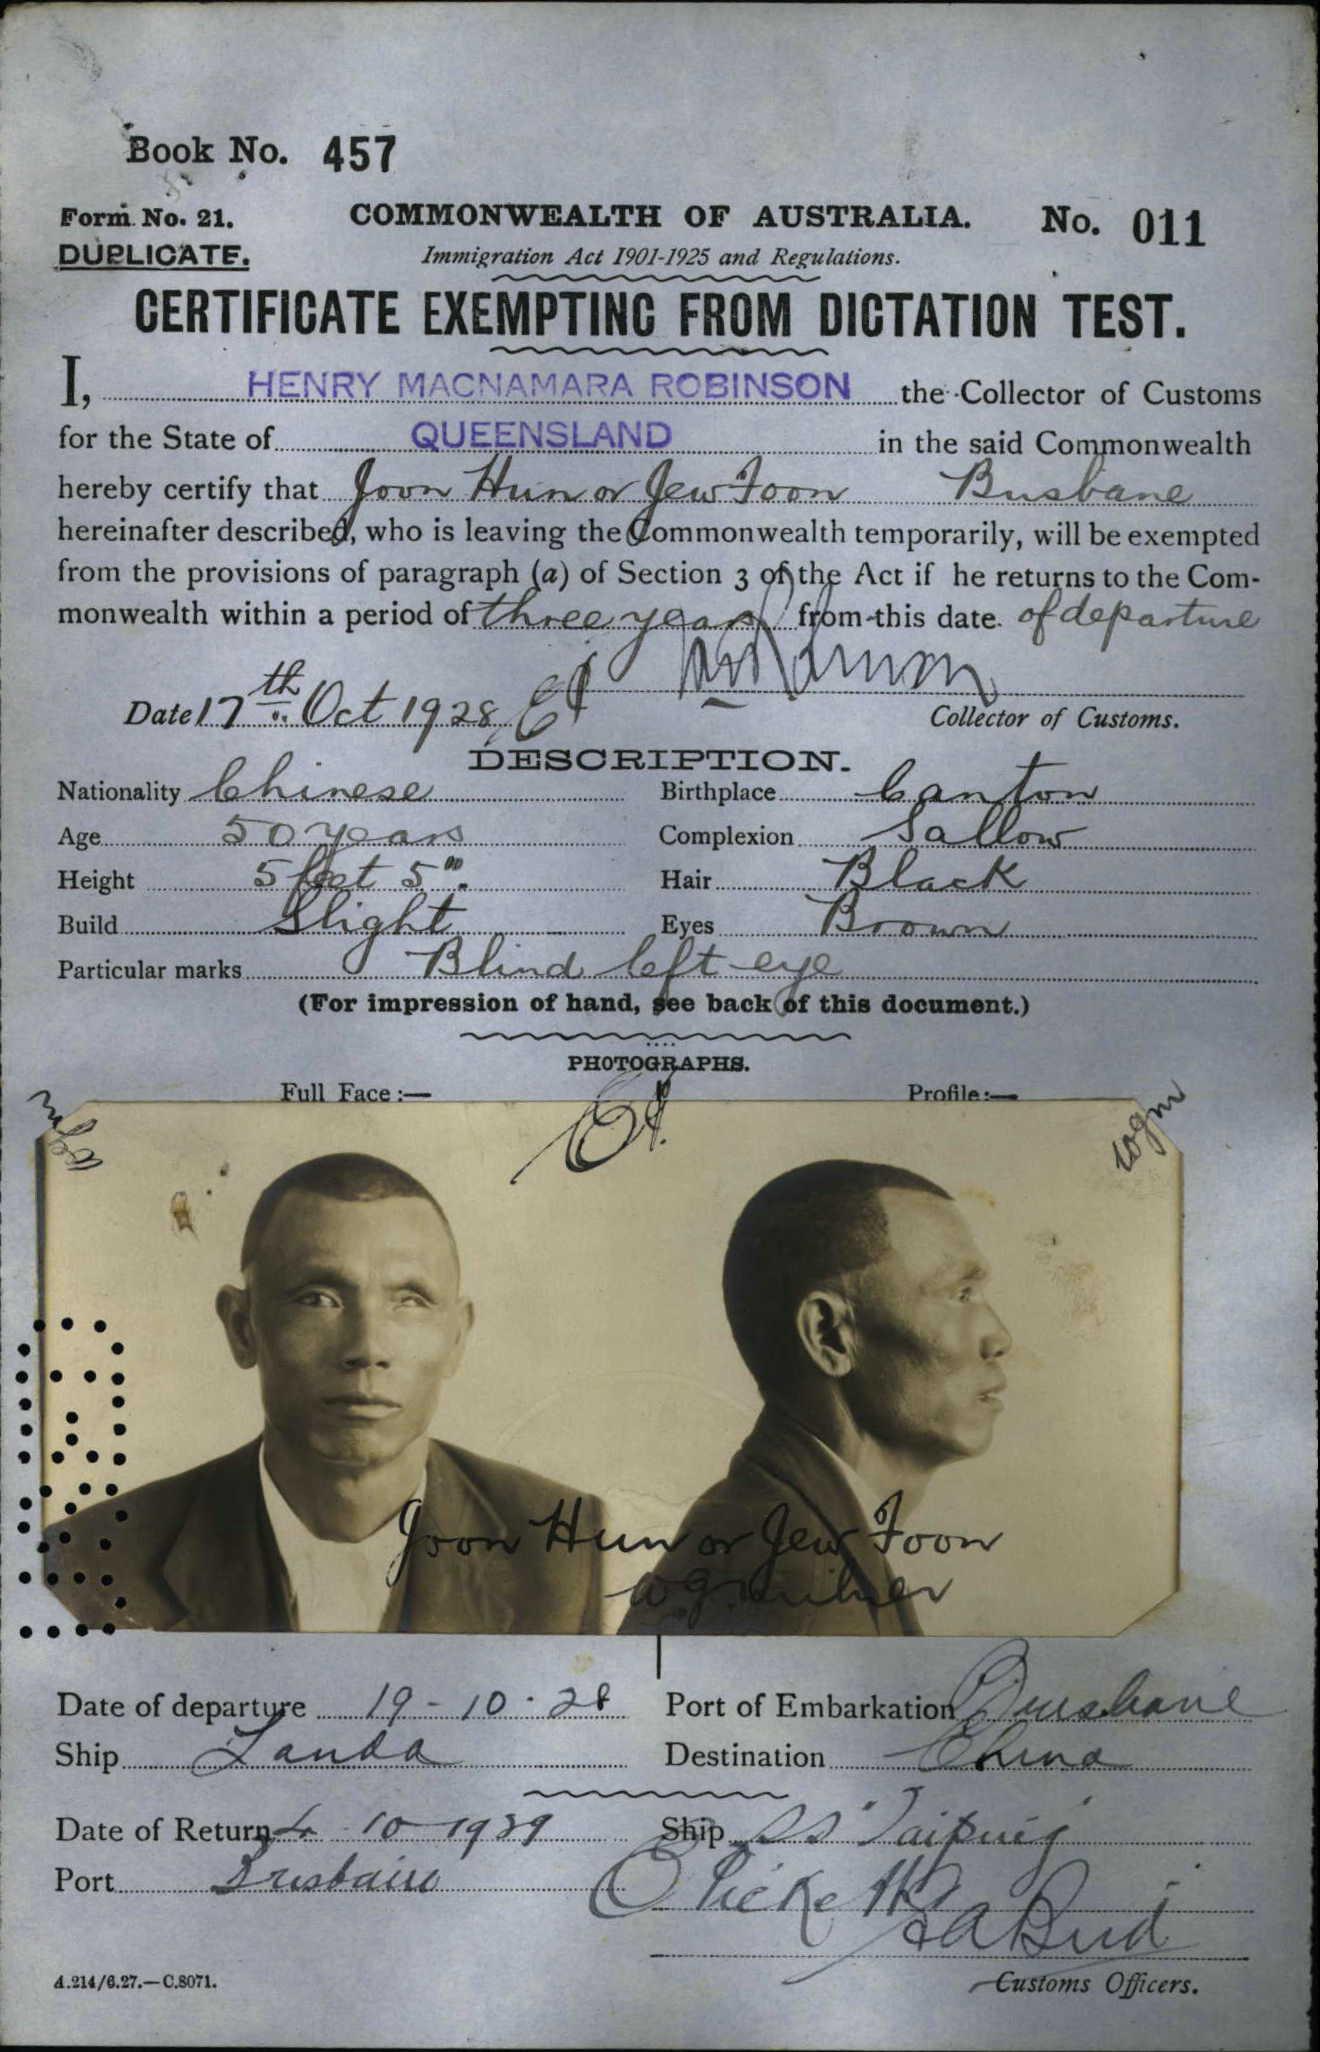 Book No. 457
Form No. 21. COMMONWEALTH OF AUSTRALIA. No. 011
DUPLICATE. Immigration Act 1901-1925 and Regulations.
CERTIFICATE EXEMPTING FROM DICTATION TEST.
I, HENRY MACNAMARA ROBINSON the Collector of Customs
for the State of QUEENSLAND in the said Commonwealth
hereby certify that Joon Hun or Jew Foon Brisbane
hereinafter described, who is leaving the Commonwealth temporarily, will be exempted
from the provisions of paragraph (a) of Section 3 of the Act if he returns to the Com-
monwealth within a period of three years from this date of departure
Date 17th Oct 1928
Collector of Customs.
DESCRIPTION.
Nationality Chinese Birthplace Canton
Age 50 years Complexion Sallow
Height 5 feet 5". Hair Black
Build Slight Eyes Brown
Particular marks Blind left eye
(For impression of hand, see back of this document.)
PHOTOGRAPHS.
Full Face:— Profile:—
wgm wgm
Joon Hun or Jew Foon
Date of departure 19-10-28 Port of Embarkation Brisbane
Ship Tanda Destination China
Date of Return 4 10 1929 Ship SS Taiping
Port Brisbane
Customs Officers.
A.214/6.27.—C.8071.